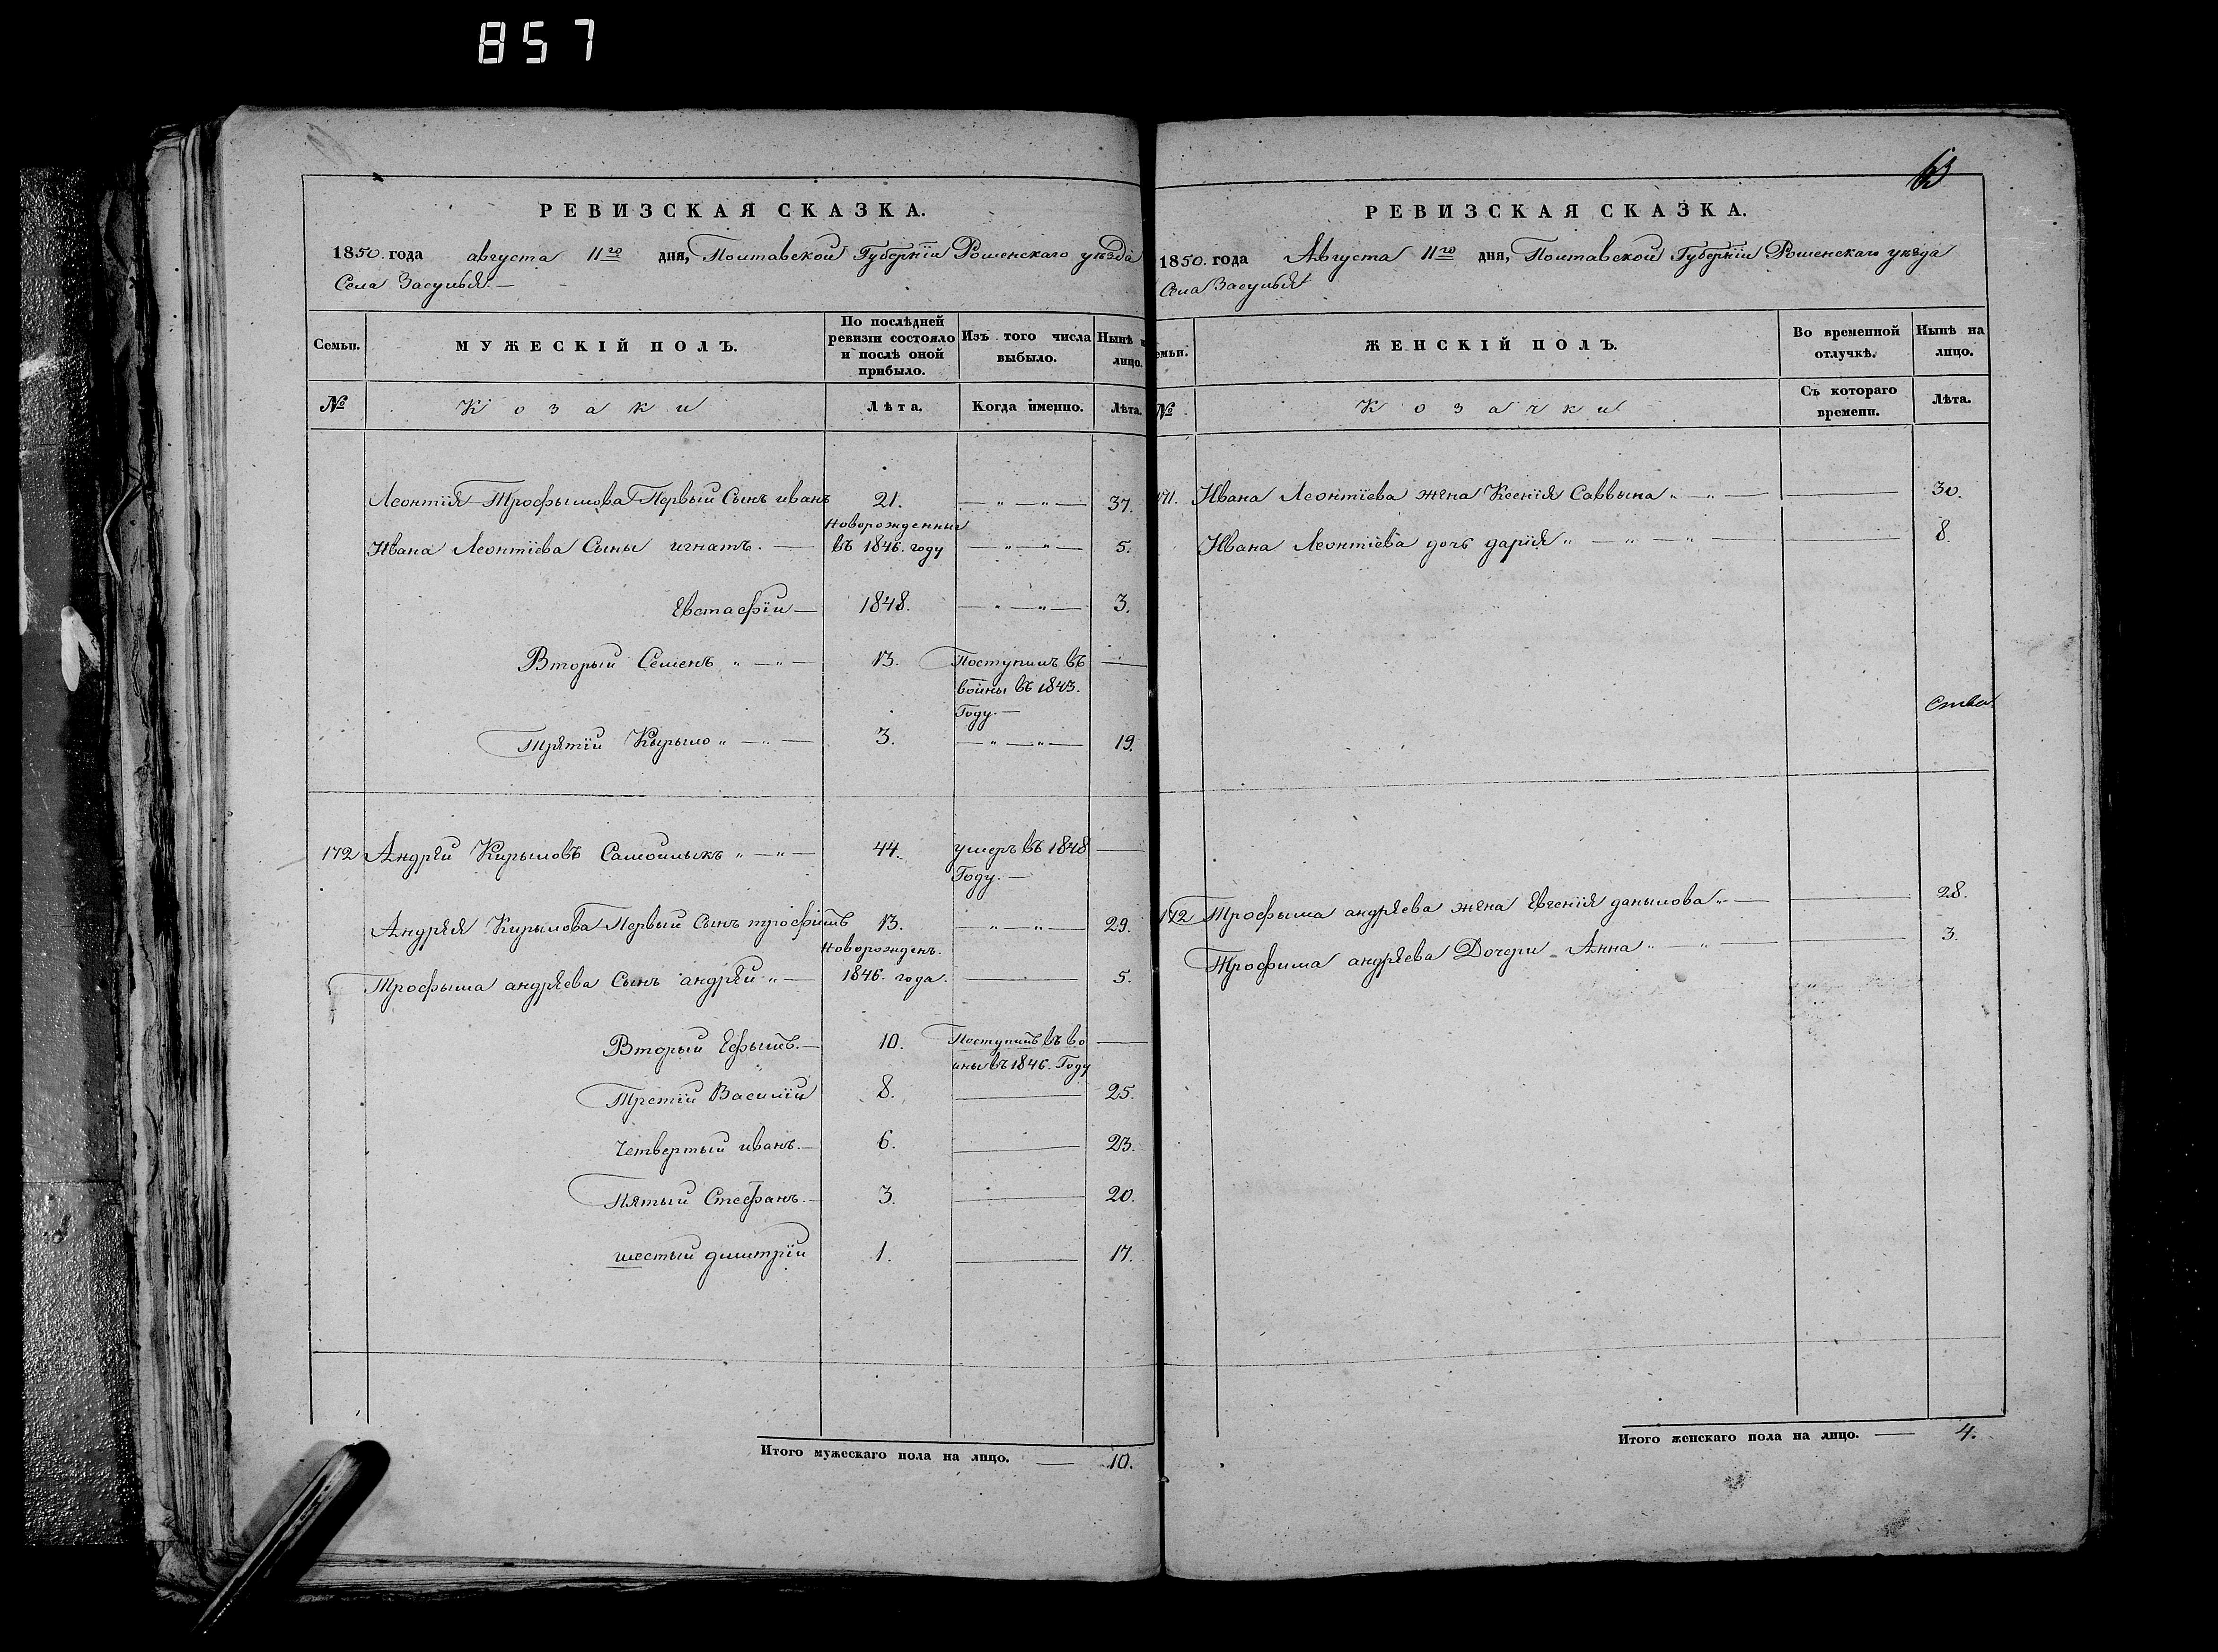 857
РЕВИЗСКАЯ СКАЗКА.
1850. года августа 11го дня, Полтавской Губернїи Роменскаго уѣзда
Села Засулья. —
Семьи.
МУЖЕСКІЙ ПОЛЪ.
По послѣдней ревизіи состояло и послѣ оной прибыло.
Изъ того числа выбыло.
Нынѣ н лицо.
№
Козаки
Лѣта.
Когда именно.
Лѣта.
Леонтія Трофымова Первый Сынъ иванъ 21. — „ — „ — 37.
Новорожденные
Ивана Леонтїева Сыны игнатъ. — въ 1846. году — „ — „ — 5.
Евстафїи — 1848. — „ — „ — 3.
Вторый Семенъ „ — „ — 13. Поступилъ въ —
войны въ 1843.
Году. —
Третїй Кырыло „ — „ — 3. — „ — „ — 19.
172 Андрей Кирыловъ Самойлыкъ „ — „ — 44. умеръ въ 1848 —
Году. —
Андрея Кирылова Первый Сынъ трофимъ 13. — „ — „ — 29.
Новорожденъ.
Трофыма андреева Сынъ андрей „ — 1846. года. — 5.
Вторый Ефымъ. — 10. Поступилъ въ во —
ины въ 1846. Году
Третїй Василїй 8. — 25.
Четвертый иванъ. — 6. — 23.
Пятый Стефанъ. — 3. — 20.
шестый димитрїй 1. — 17.
Итого мужескаго пола на лицо. — 10.
63
РЕВИЗСКАЯ СКАЗКА.
1850. года Августа 11го дня, Полтавской Губернїи Роменскаго уѣзда
Села Засулья
емьи.
ЖЕНСКІЙ ПОЛЪ.
Во временной отлучкѣ.
Нынѣ на лицо.
№
Козачки
Съ котораго времени.
Лѣта.
171. Ивана Леонтїева жена Ксенїя Саввына „ — „ — — 30.
Ивана Леонтїева дочь дарїя „ — „ — „ — — 8.
172 Трофыма андреева жена Евгенїя данылова „ — — 28.
Трофима андреева Дочери Анна „ — „ — — 3.
Итого женскаго пола на лицо. — 4.